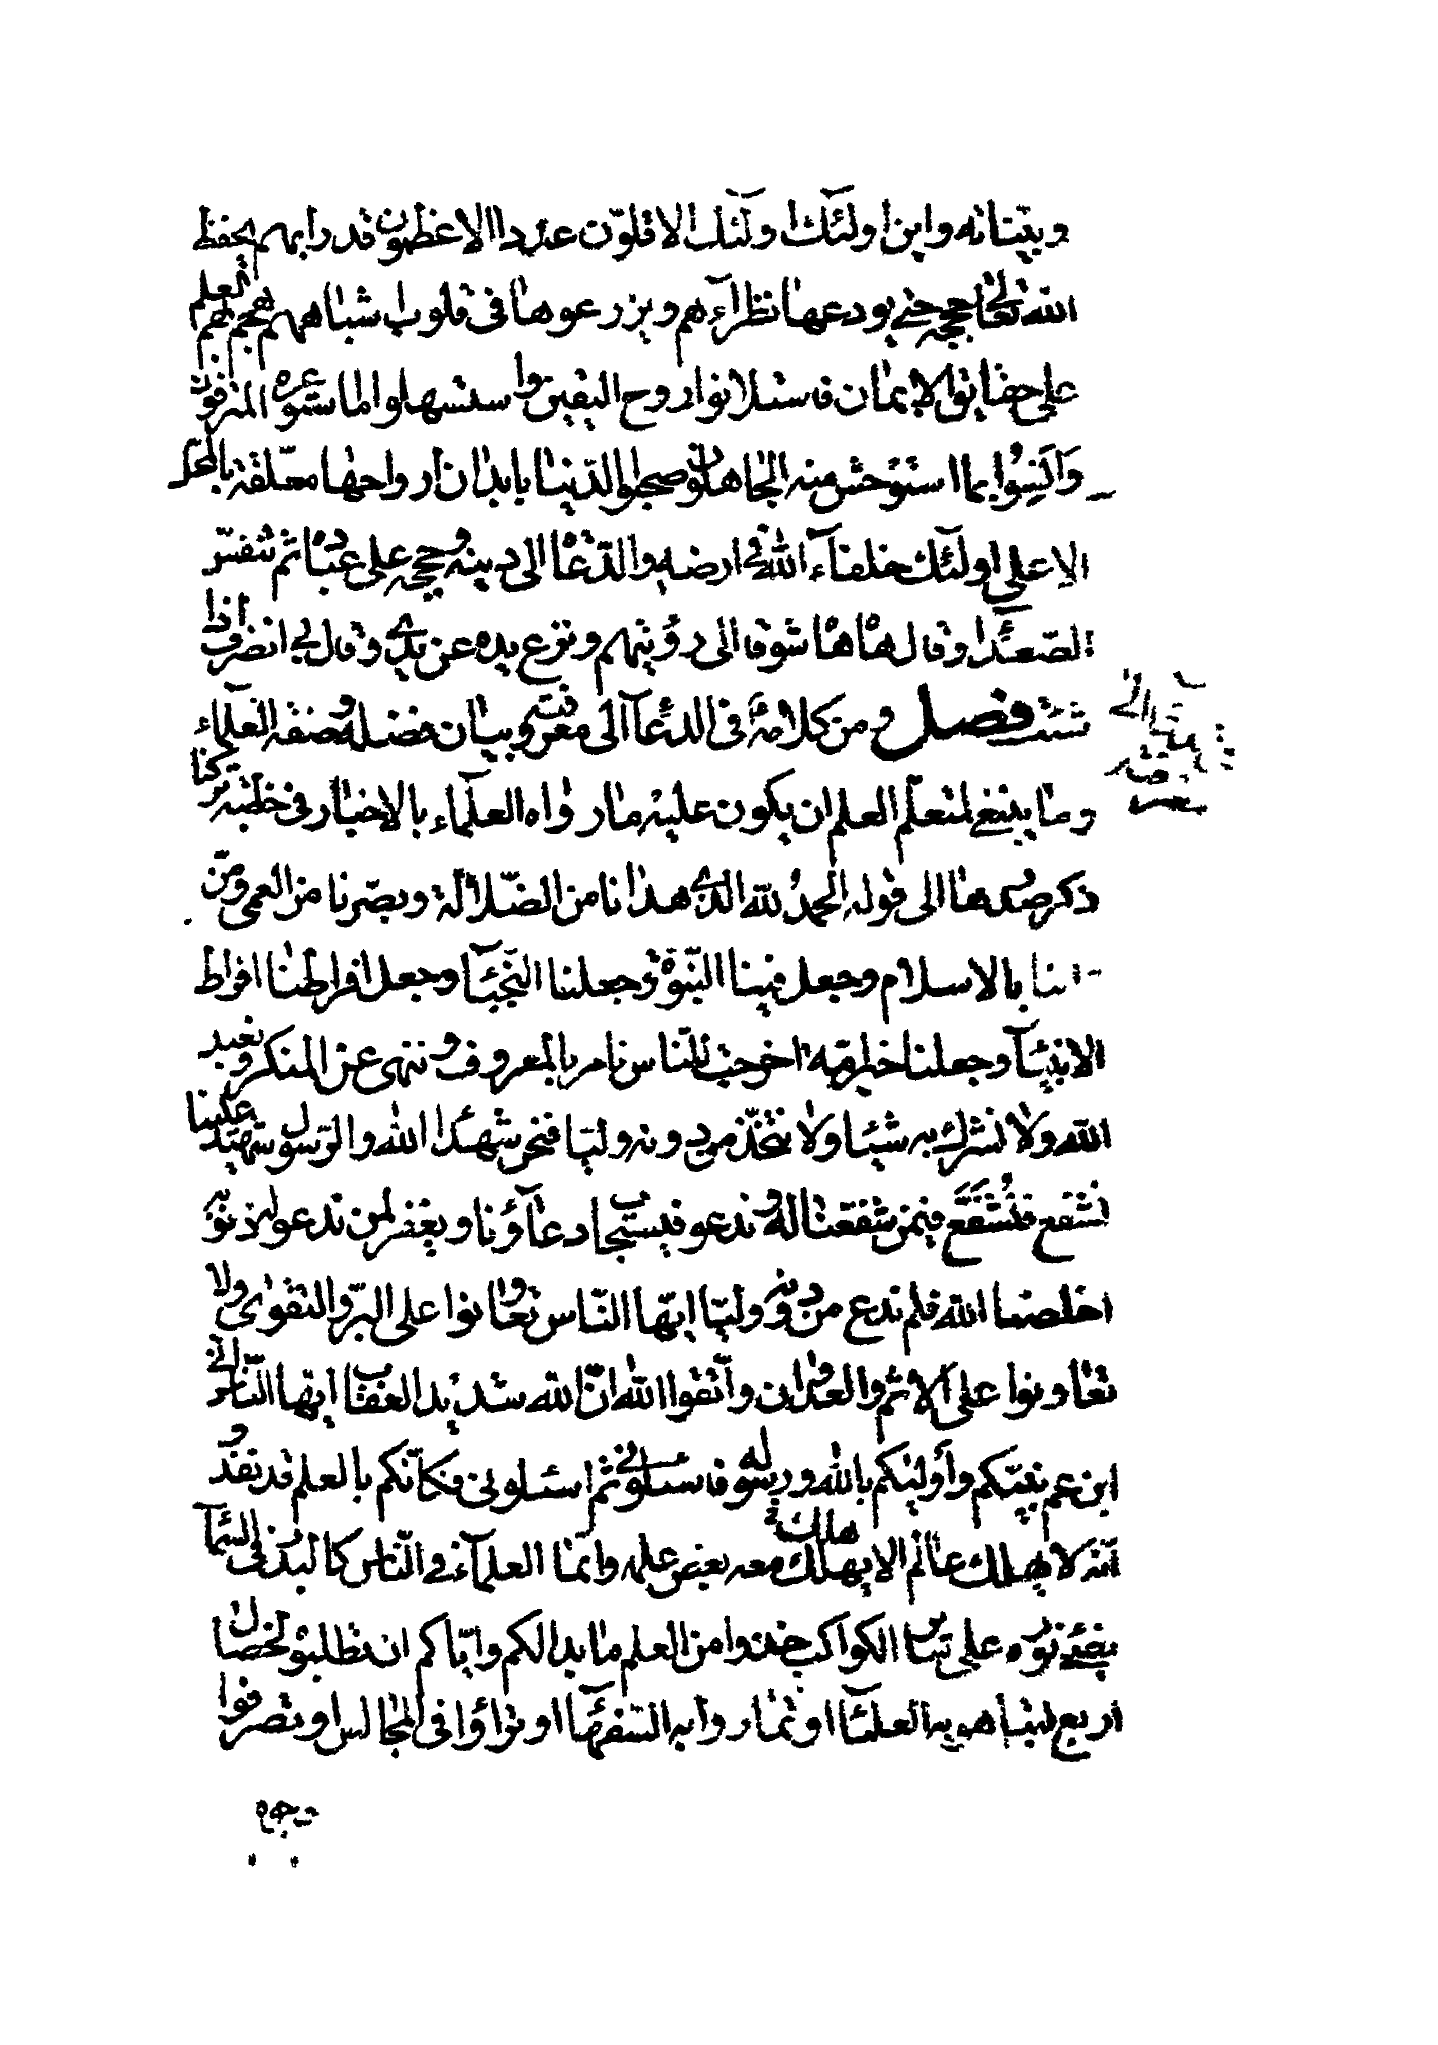 وبيّناته واين اولئك اولئك الاقلّون عددا الاعظمون قدرا بهم يحفظ
الله تعالى حججه حتى يودعها نظرآءهم ويزرعوها في قلوب اشباههم هجم بهم العلم
على حقايق الايمان فاستلانوا روح اليقين واستسهلوا ما استوعره المترفون
وآنسوا بما استوحش منه الجاهلون صحبوا الدّنيا بابدان ارواحها معلّقة بالمحل
الاعلى اولئك خلفآء الله في ارضه والدّعاة الى دينه وحججه على عباده ثم تنفس
الصّعدآء وقال هاه هاه شوقا الى رؤيتهم ونزع يده عن يدي وقال لي انصرف اذا
شئت فصل ومن كلامه في الدعآء الى معرفته وبيان فضله وصفة العلمآء
وما ينبغي لمتعلّم العلم ان يكون عليه ما رواه العلمآء بالاخبار في خطبة تركنا
ذكر صدرها الى قوله الحمد لله الذي هدانا من الضّلالة وبصّرنا من العمى ومنّ
علينا بالاسلام وجعل فينا النّبوّة وجعلنا النّجبآء وجعل افراطنا افراط
الانبيآء وجعلنا خير امّة اخرجت للنّاس نامر بالمعروف وننهى عن المنكر ونعبد
الله ولا نشرك به شيئا ولا نتّخذ من دونه وليّا فنحن شهدآء الله والرّسول شهيد علينا
نشفع فنشفّع فيمن شفعنا له وندعو فيستجاب دعآؤنا ويغفر لمن ندعو له ذنوبه
اخلصنا الله فلم ندع من دونه وليّا ايّها النّاس تعاونوا على البرّ والتقوى ولا
تعاونوا على الاثم والعدوان واتّقوا الله انّ الله شديد العقاب ايّها النّاس انّي
ابن عم نبيّكم واوليكم بالله ورسوله فاسئلوني ثم اسئلوني فكانّكم بالعلم قد نفد و
انّه لا يهلك عالم الا يهلك معه بعض علمه وانّما العلمآء في النّاس كالبدر في السمآء
يضئ نوره على سائر الكواكب خذوا من العلم ما بدا لكم وايّاكم ان تطلبوه لخصال
اربع لتباهو به العلمآء او تماروا به السّفهآء او تراؤا في المجالس او تصرفوا
وجوه